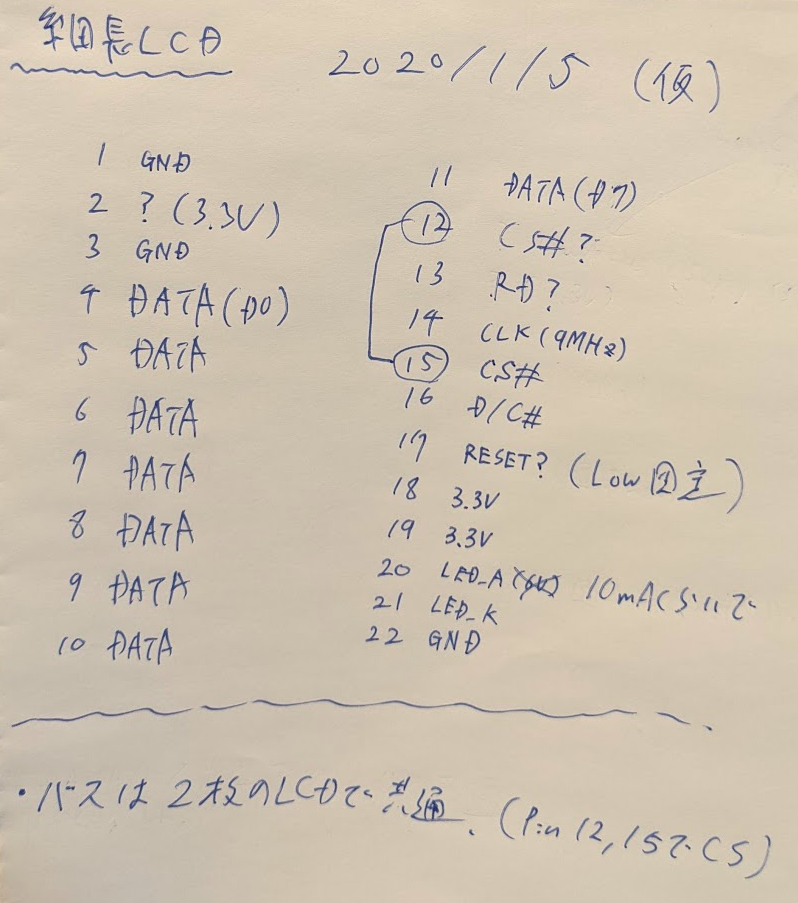 細長LCD
2020/1/5 (仮)
1 GND
2 ? (3.3V)
3 GND
4 DATA(D0)
5 DATA
6 DATA
7 DATA
8 DATA
9 DATA
10 DATA
11 DATA(D7)
12 CS#?
13 RD?
14 CLK(9MHz)
15 CS#
16 D/C#
17 RESET? (Low
18 3.3V
19 3.3V
20 LED_A 10mAくらいで
21 LED_K
22 GND
・バスは2枚のLCDで共通、(Pin 12,15でCS)